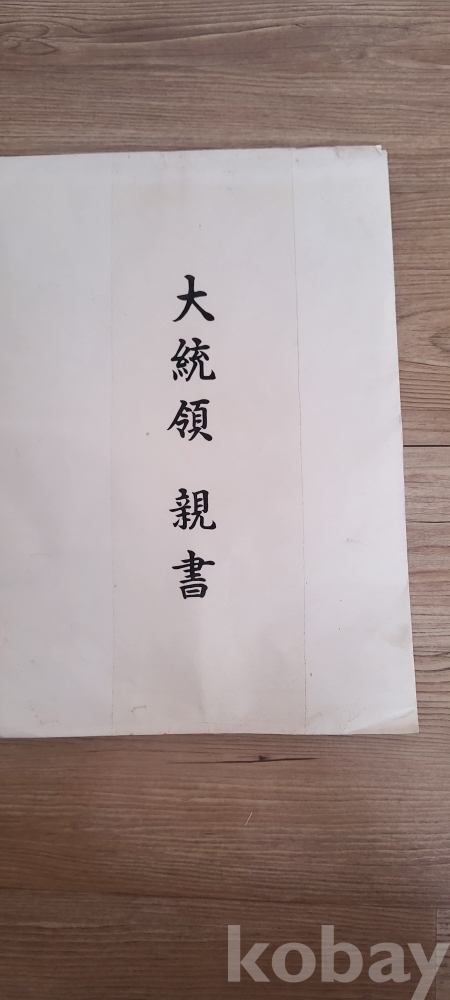 大統領 親書
kobay